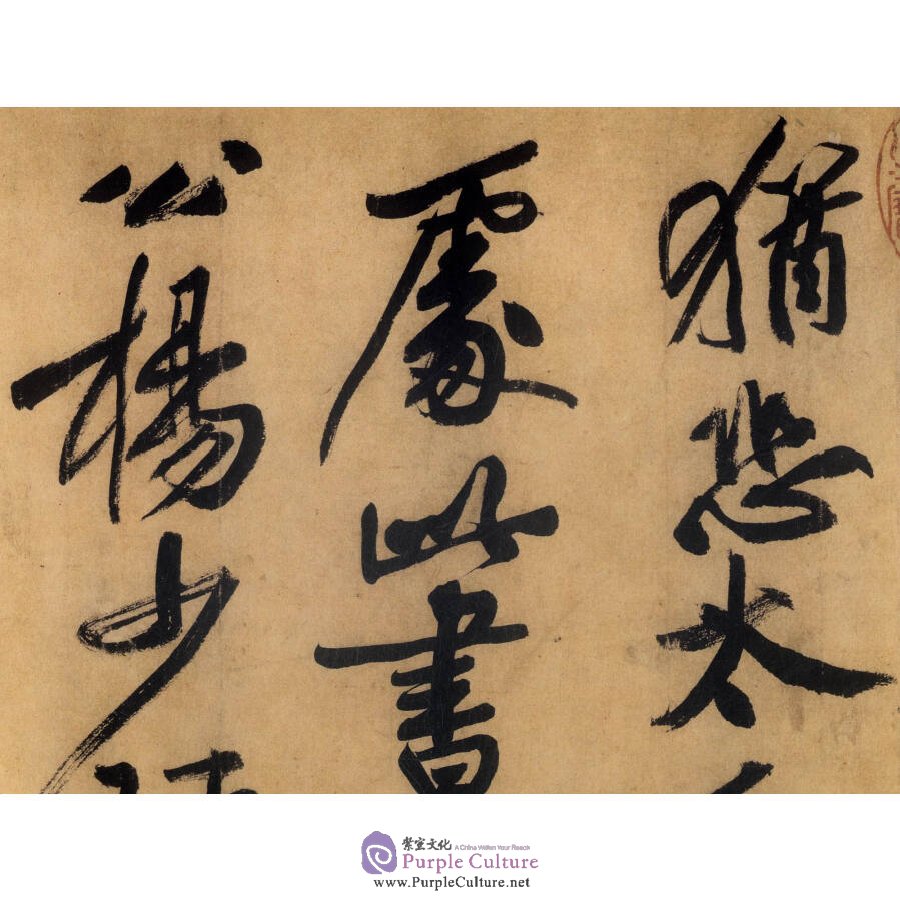 猶恐太
處此書
公楊少
文化 A China Within Your Reach
Purple Culture
www.PurpleCulture.net